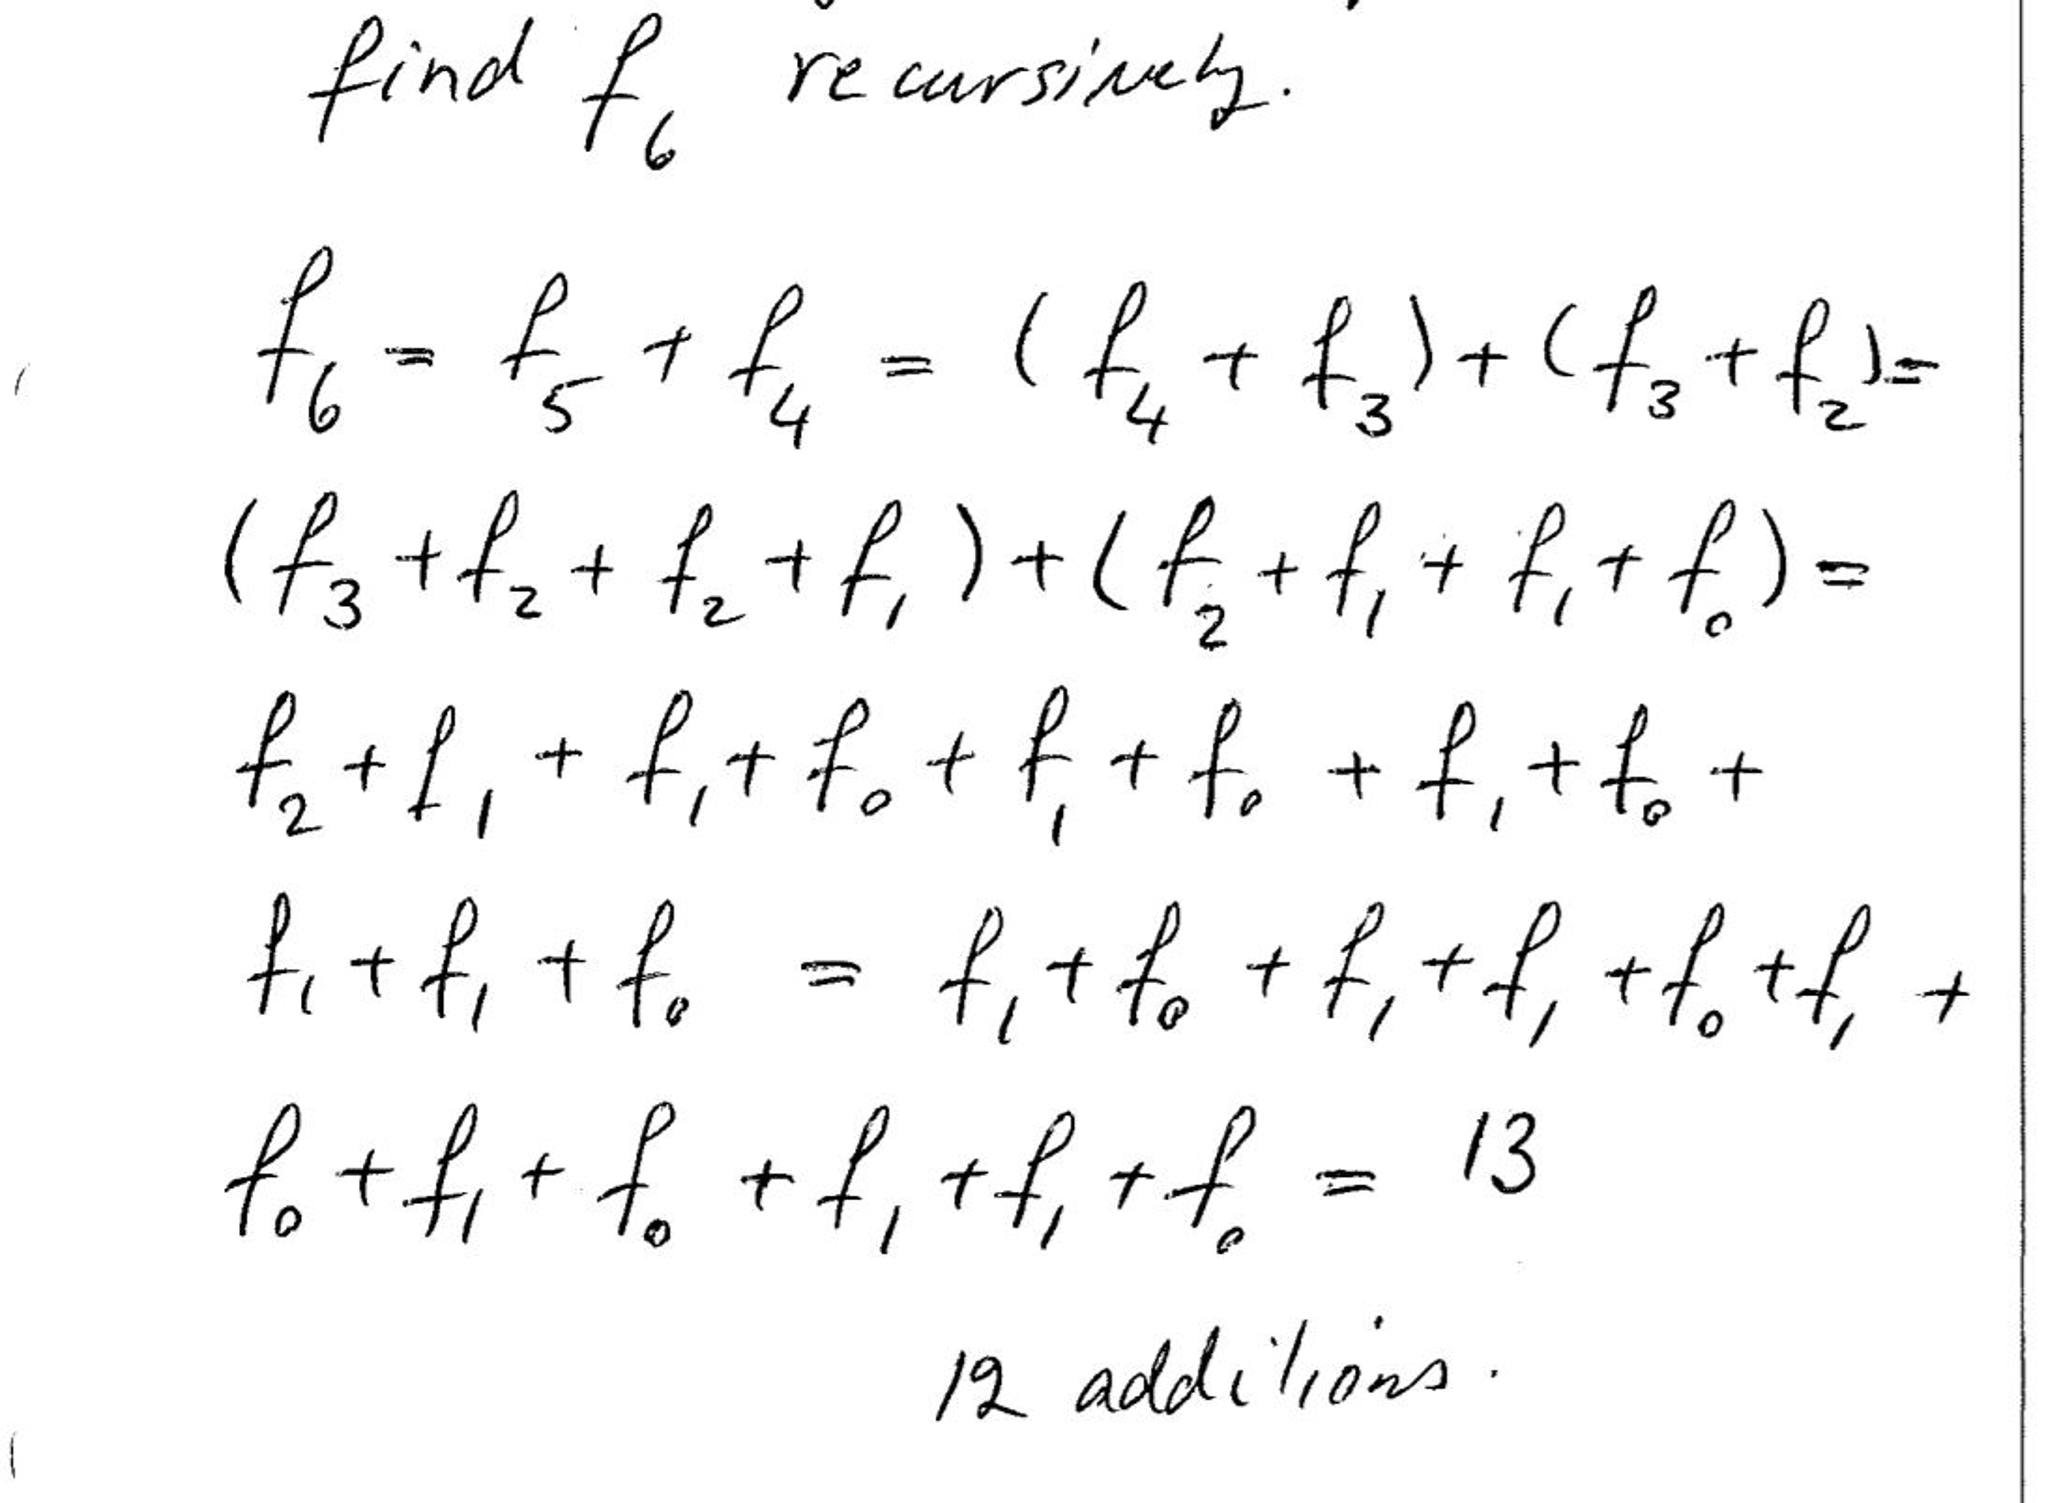 find f₆ recursively.
f₆ = f₅ + f₄ = (f₄ + f₃) + (f₃ + f₂) =
(f₃ + f₂ + f₂ + f₁) + (f₂ + f₁ + f₁ + f₀) =
f₂ + f₁ + f₁ + f₀ + f₁ + f₀ + f₁ + f₀ +
f₁ + f₁ + f₀ = f₁ + f₀ + f₁ + f₁ + f₀ + f₁ +
f₀ + f₁ + f₀ + f₁ + f₁ + f₀ = 13
12 additions.